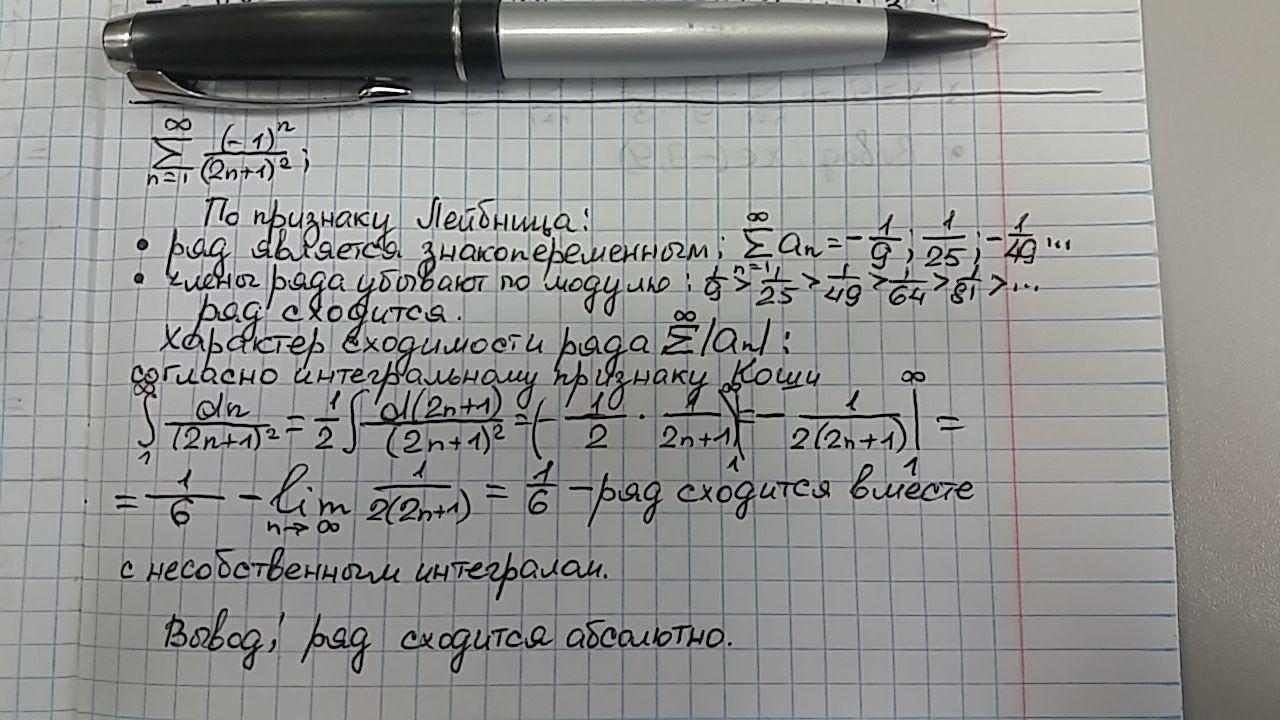 ∞ Σ n=1 (-1)^n / (2n+1)^2 ;
По признаку Лейбница:
• ряд является знакопеременным; ∞ Σ n=1 an = - 1/9 ; 1/25 ; - 1/49 ...
• члены ряда убывают по модулю: 1/9 > 1/25 > 1/49 > 1/64 > 1/81 > ...
ряд сходится.
Характер сходимости ряда ∞ Σ |an| :
согласно интегральному признаку Коши
∞ ∫ 1 dn / (2n+1)^2 = 1/2 ∫ d(2n+1) / (2n+1)^2 = (- 1/2 · 1/(2n+1)) | ∞ 1 = - 1 / 2(2n+1) | ∞ 1 =
= 1/6 - lim n→∞ 1 / 2(2n+1) = 1/6 - ряд сходится вместе
с несобственным интегралом.
Вывод; ряд сходится абсолютно.